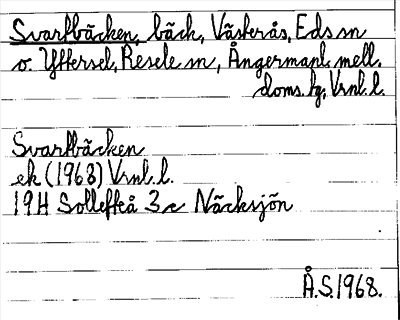 Svartbäcken, bäck, Västerås, Eds sn
o. Yttersel, Resele sn, Ångermanl. mell.
doms. kg, Vrnl. l.
Svartbäcken
ek (1968) Vrnl. l.
19H Sollefteå 3 c Näcksjön
Å.S. 1968.